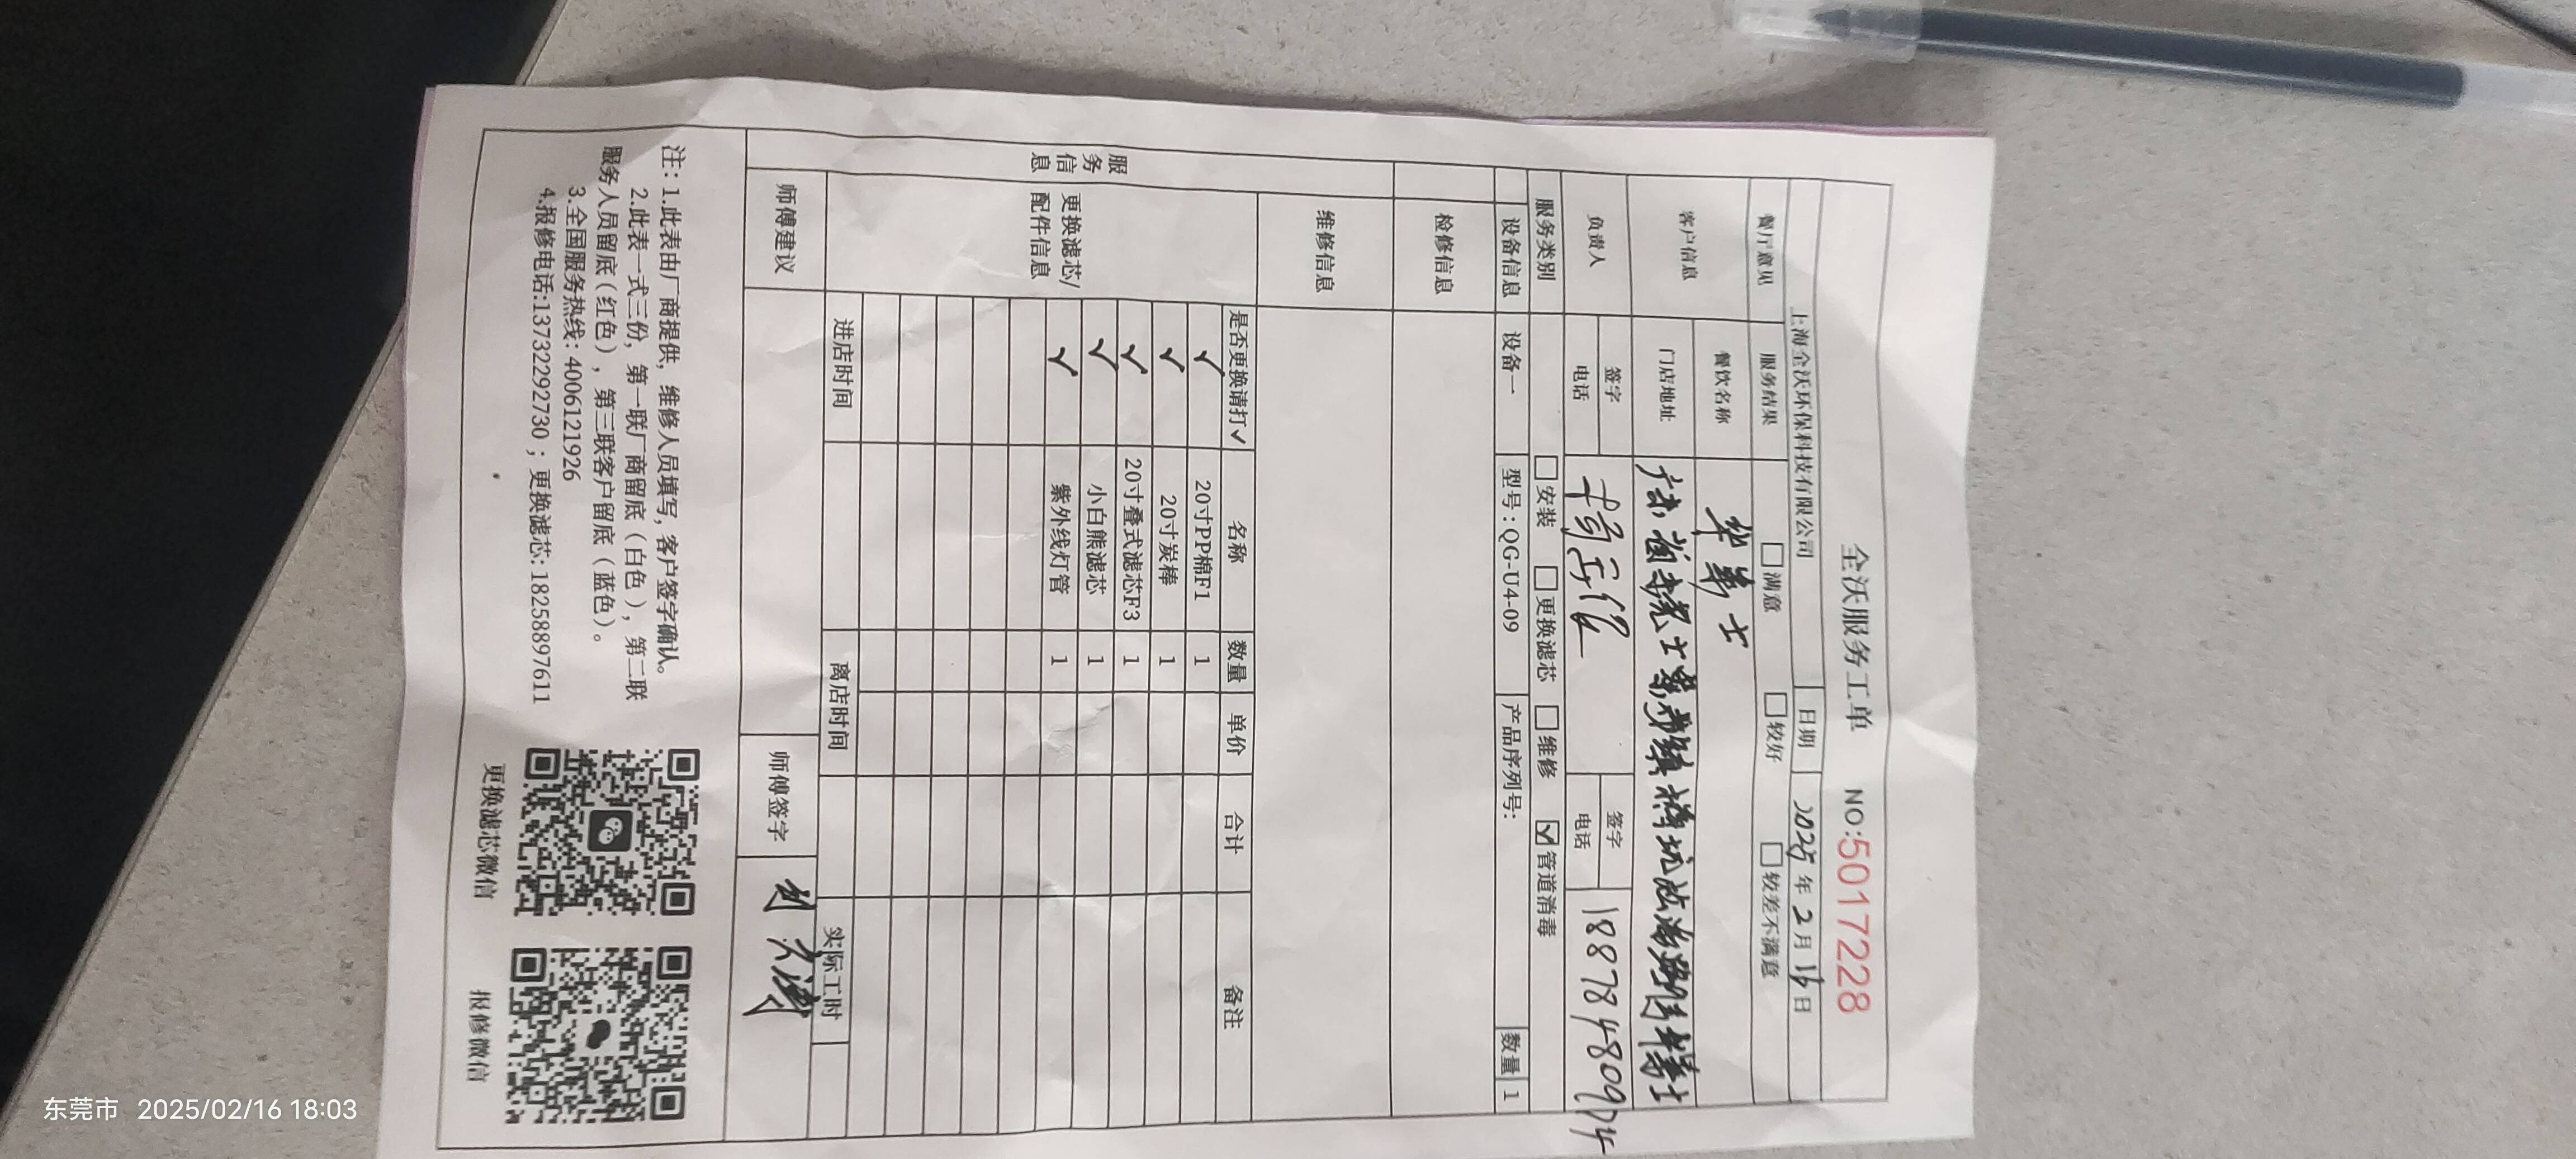 全沃服务工单 NO:5017228
上海全沃环保科技有限公司 日期 2025年2月16日
餐厅意见 服务结果 □满意 □较好 □较差不满意
客户信息 餐饮名称 华莱士
门店地址 广东省东莞士
负责人 签字 电话 签字 电话 18878480974
服务类别 □安装 □更换滤芯 □维修 ☑管道消毒
设备信息 设备一 型号:QG-U4-09 产品序列号: 数量 1
检修信息
维修信息
服务信息
更换滤芯/配件信息
是否更换请打✓ 名称 数量 单价 合计 备注
✓ 20寸PP棉F1 1
✓ 20寸炭棒 1
✓ 20寸叠式滤芯F3 1
✓ 小白熊滤芯 1
✓ 紫外线灯管 1
进店时间 离店时间 实际工时
师傅建议 师傅签字
注:1.此表由厂商提供,维修人员填写,客户签字确认。
2.此表一式三份,第一联厂商留底(白色),第二联
服务人员留底(红色),第三联客户留底(蓝色)。
3.全国服务热线:4006121926
4.报修电话:13732292730;更换滤芯:18258897611
更换滤芯微信 报修微信
东莞市 2025/02/16 18:03